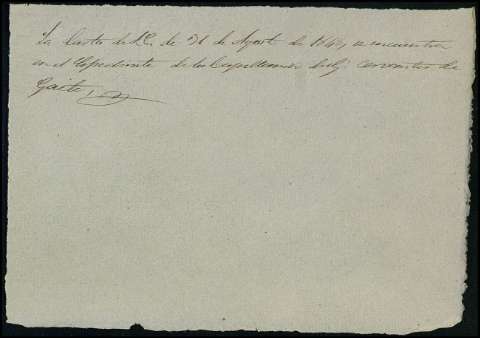 La Carta de de 31 de Agosto de 1849, se encuentra
en el Expediente de las Capellanias del
Gaete